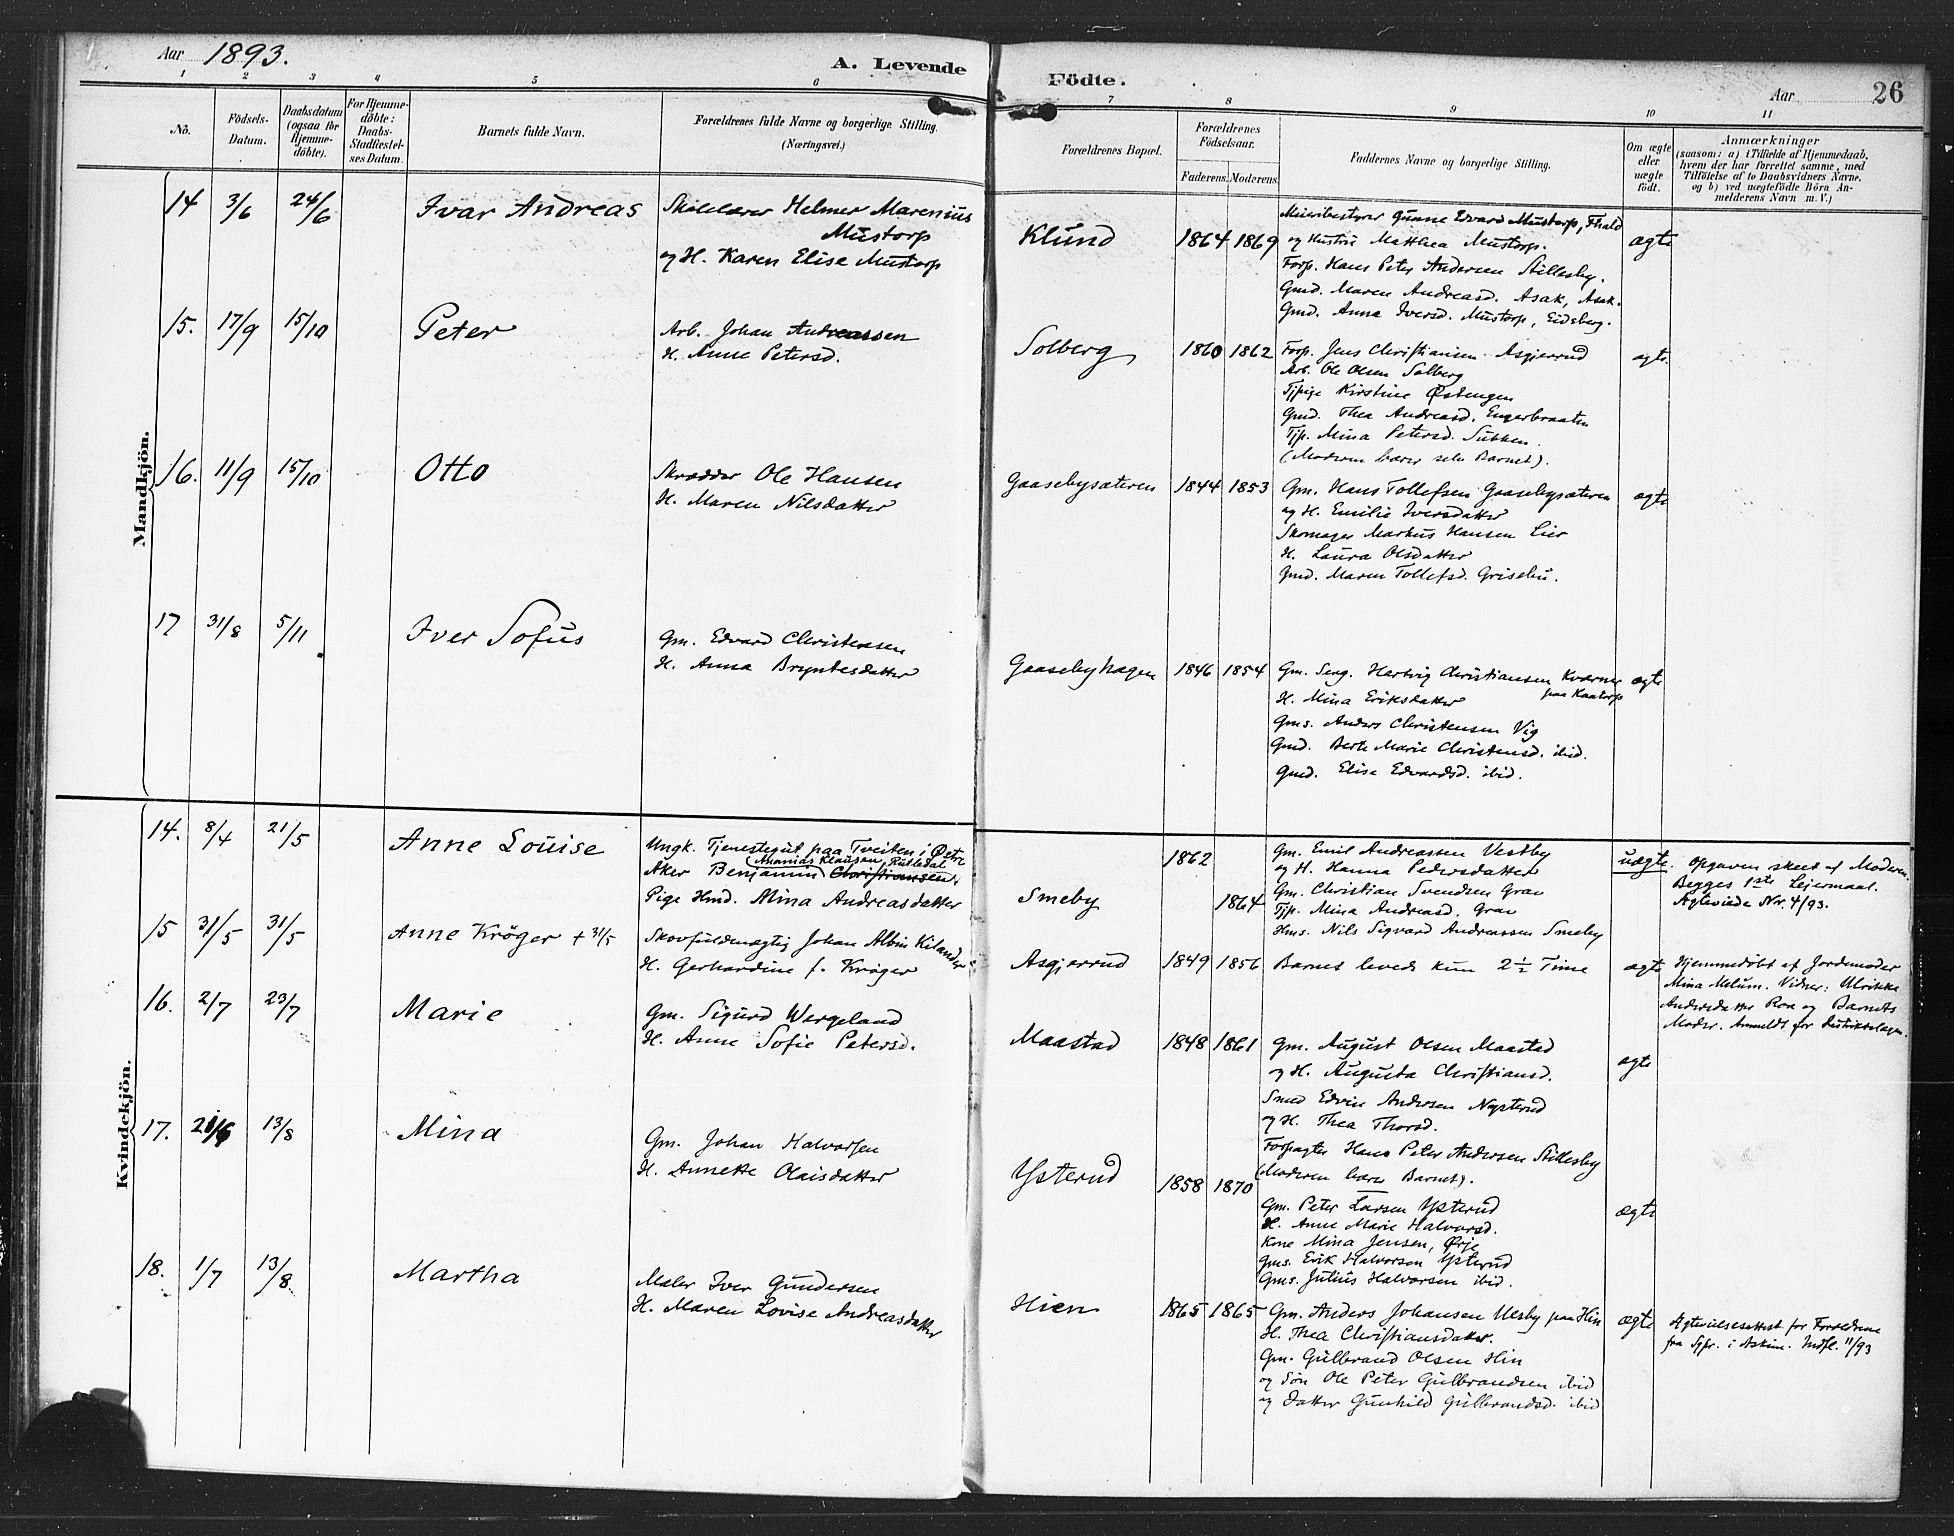 Aar 1893.
A. Levende Födte.
Aar
26
1
2
3
4
5
6
7
8
9
10
11
No.
Födsels-Datum.
Daabsdatum (ogsaa for Hjemme-döbte).
For Hjemme-döbte: Daabs-Stadfæstel-ses Datum.
Barnets fulde Navn.
Forældrenes fulde Navne og borgerlige Stilling. (Næringsvei.)
Forældrenes Bopæl.
Forældrenes Födselsaar.
Faderens. Moderens.
Faddernes Navne og borgerlige Stilling.
Om ægte eller uægte födt.
Anmærkninger
(saasom: a) i Tilfælde af Hjemmedaab,
hvem der har forrettet samme, med
Tilföielse af to Daabsvidners Navne.
og b) ved uægtefödte Börn An-
melderens Navn m.V.)
Mandkjön.
14 3/6 24/6 Ivar Andreas
Skolelærer Helmer Marenius
Mustorp
og H. Karen Elise Mustorp
Klund 1864 1869
Meieribestyrer Gunne Edvard Mustorp,
og Hustru Matthea Mustorp.
Forp. Hans Peter Andersen Stillesby.
Gmd. Maren Andreasd. Asak, Asak.
Gmd. Anna Iversd. Mustorp, Eidsberg.
ægte
15. 17/9 15/10 Peter
Arb. Johan Andreassen
H. Anne Petersd.
Solberg 1860 1862
Forp. Jens Christiansen Asgjerrud
Arb. Ole Olsen Solberg
Tjpige Kirstine Østengen
Gmd. Thea Andreasd. Engerbraaten
Tjp. Mina Petersd. Sukken.
(Moderen bærer selv Barnet).
ægte
16. 11/9 15/10 Otto
Skrædder Ole Hansen
H. Maren Nilsdatter
Gaasebysæteren 1844 1853
Gm. Hans Tollefsen Gaasebysæteren
og H. Emilie Iversdatter
Skomager Markus Hansen Lier
H. Laura Olsdatter
Gmd. Maren Tollefsd. Grisebu.
ægte
17 31/8 5/11 Iver Sofus
Gm. Edvard Christensen
H. Anna Bryntesdatter
Gaasebyhagen 1846 1854
Gm. Serg. Hartvig Christiansen Kværner
paa Kaatorp
H. Mina Eriksdatter
Gms. Anders Christensen Vig
Gmd. Berte Marie Christensd. ibid.
Gmd. Elise Edvardsd. ibid.
ægte
Kvindekjön.
14. 8/4 21/5 Anne Louise
Ungk. Tjenestegut paa Tveiten i Østre
(Ananias Klausen Rutledal
Aker Benjamin Christiansen
Pige Hmd. Mina Andreasdatter
Smeby 1862 1864
Gm. Emil Andreassen Vestby
og H. Hanna Pedersdatter
Gm. Christian Svendsen Grav
Tjp. Mina Andreasd. Grav
Hms. Nils Sigvard Andreassen Smeby
uægte.
Opgaven skeet af Moderen.
Begges 1ste Leiermaal.
Ægteviede Nr. 4/93.
15 31/5 31/5 Anne Krøger + 31/5
Skovfuldmægtig Johan Albin Kilander
H. Gerhardine f. Krøger
Asgjerrud 1849 1856
Barnet levede kun 2 1/2 Time
ægte
Hjemmedøbt af Jordemoder
Mina Melum. Vidner: Ulrikke
Andersdatter Roa og Barnets
Moder. Anmeldt for Distriktslægen.
16. 2/7 23/7 Marie
Gm. Sigurd Wergeland
H. Anne Sofie Petersd.
Maastad 1848 1861
Gm. August Olsen Maastad
og H. Augusta Christiansd.
Smed Edvin Andersen Nysterud
og H. Thea Thorsd.
Forpagter Hans Peter Andersen Stillesby
(Moderen bærer Barnet).
ægte
17. 21/6 13/8 Mina
Gm. Johan Halvorsen
H. Annette Olaisdatter
Ysterud 1858 1870
Gm. Peter Larsen Ysterud
H. Anne Marie Halvorsd.
Kone Mina Jensen, Ørje
Gms. Erik Halvorsen Ysterud
Gms. Julius Halvorsen ibid.
ægte
18. 1/7 13/8 Martha
Maler Iver Gundersen
H. Maren Lovise Andreasdatter
Hien 1865 1865
Gm. Anders Johansen Uesby paa Hin
H. Thea Christiansdatter.
Gm. Gulbrand Olsen Hin
og Søn Ole Peter Gulbrandsen ibid
og Datter Gunhild Gulbrandsd. ibid
ægte
Ægtevielsesattest for Forældrene
fra Spr. i Askim. Indfl. 11/93